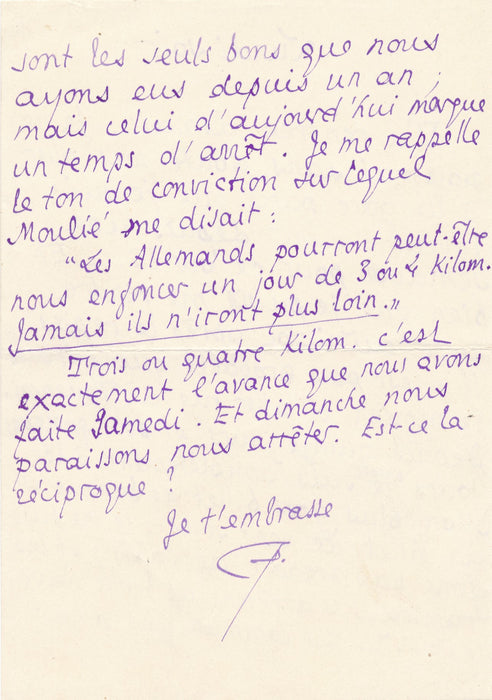 sont les seuls bons que nous
ayons eus depuis un an ;
mais celui d'aujourd'hui marque
un temps d'arrêt. Je me rappelle
le ton de conviction sur lequel
Moulié me disait :
"Les Allemands pourront peut-être
nous enfoncer un jour de 3 ou 4 Kilom.
Jamais ils n'iront plus loin."
Trois ou quatre Kilom. c'est
exactement l'avance que nous avons
faite Samedi. Et dimanche nous
paraissons nous arrêter. Est-ce la
réciproque ?
Je t'embrasse
P.